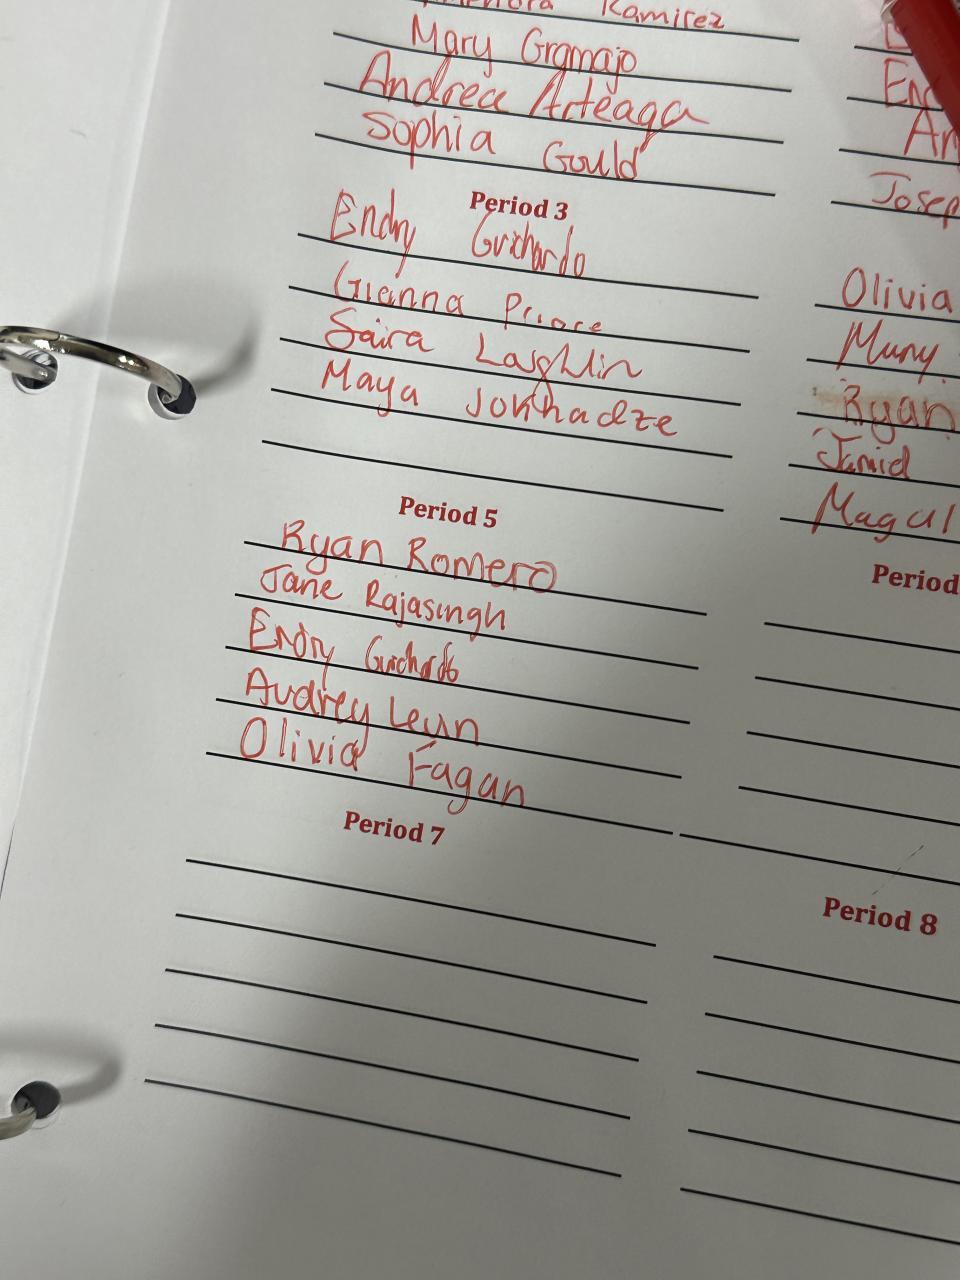 Ramirez
Mary Gramajo
Andrea Arteaga
Sophia Gould
Period 3
Endry Guichardo
Gianna Priore
Saira Laghlin
Maya Jokhadze
Period 5
Ryan Romero
Jane Rajasingh
Endry Guichardo
Audrey Leun
Olivia Fagan
Period 7
En
An
Josep
Olivia
Muny
Ryan
Jamid
Magal
Period
Period 8